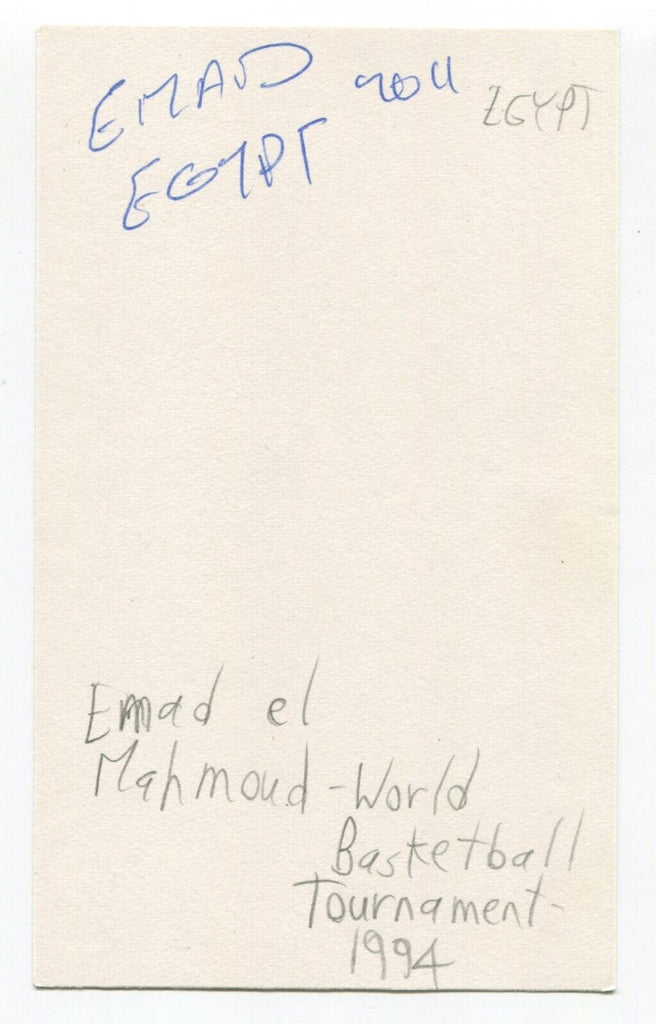 EMAD
EGYPT
EGYPT
Emad el
Mahmoud - World
Basketball
Tournament -
1994